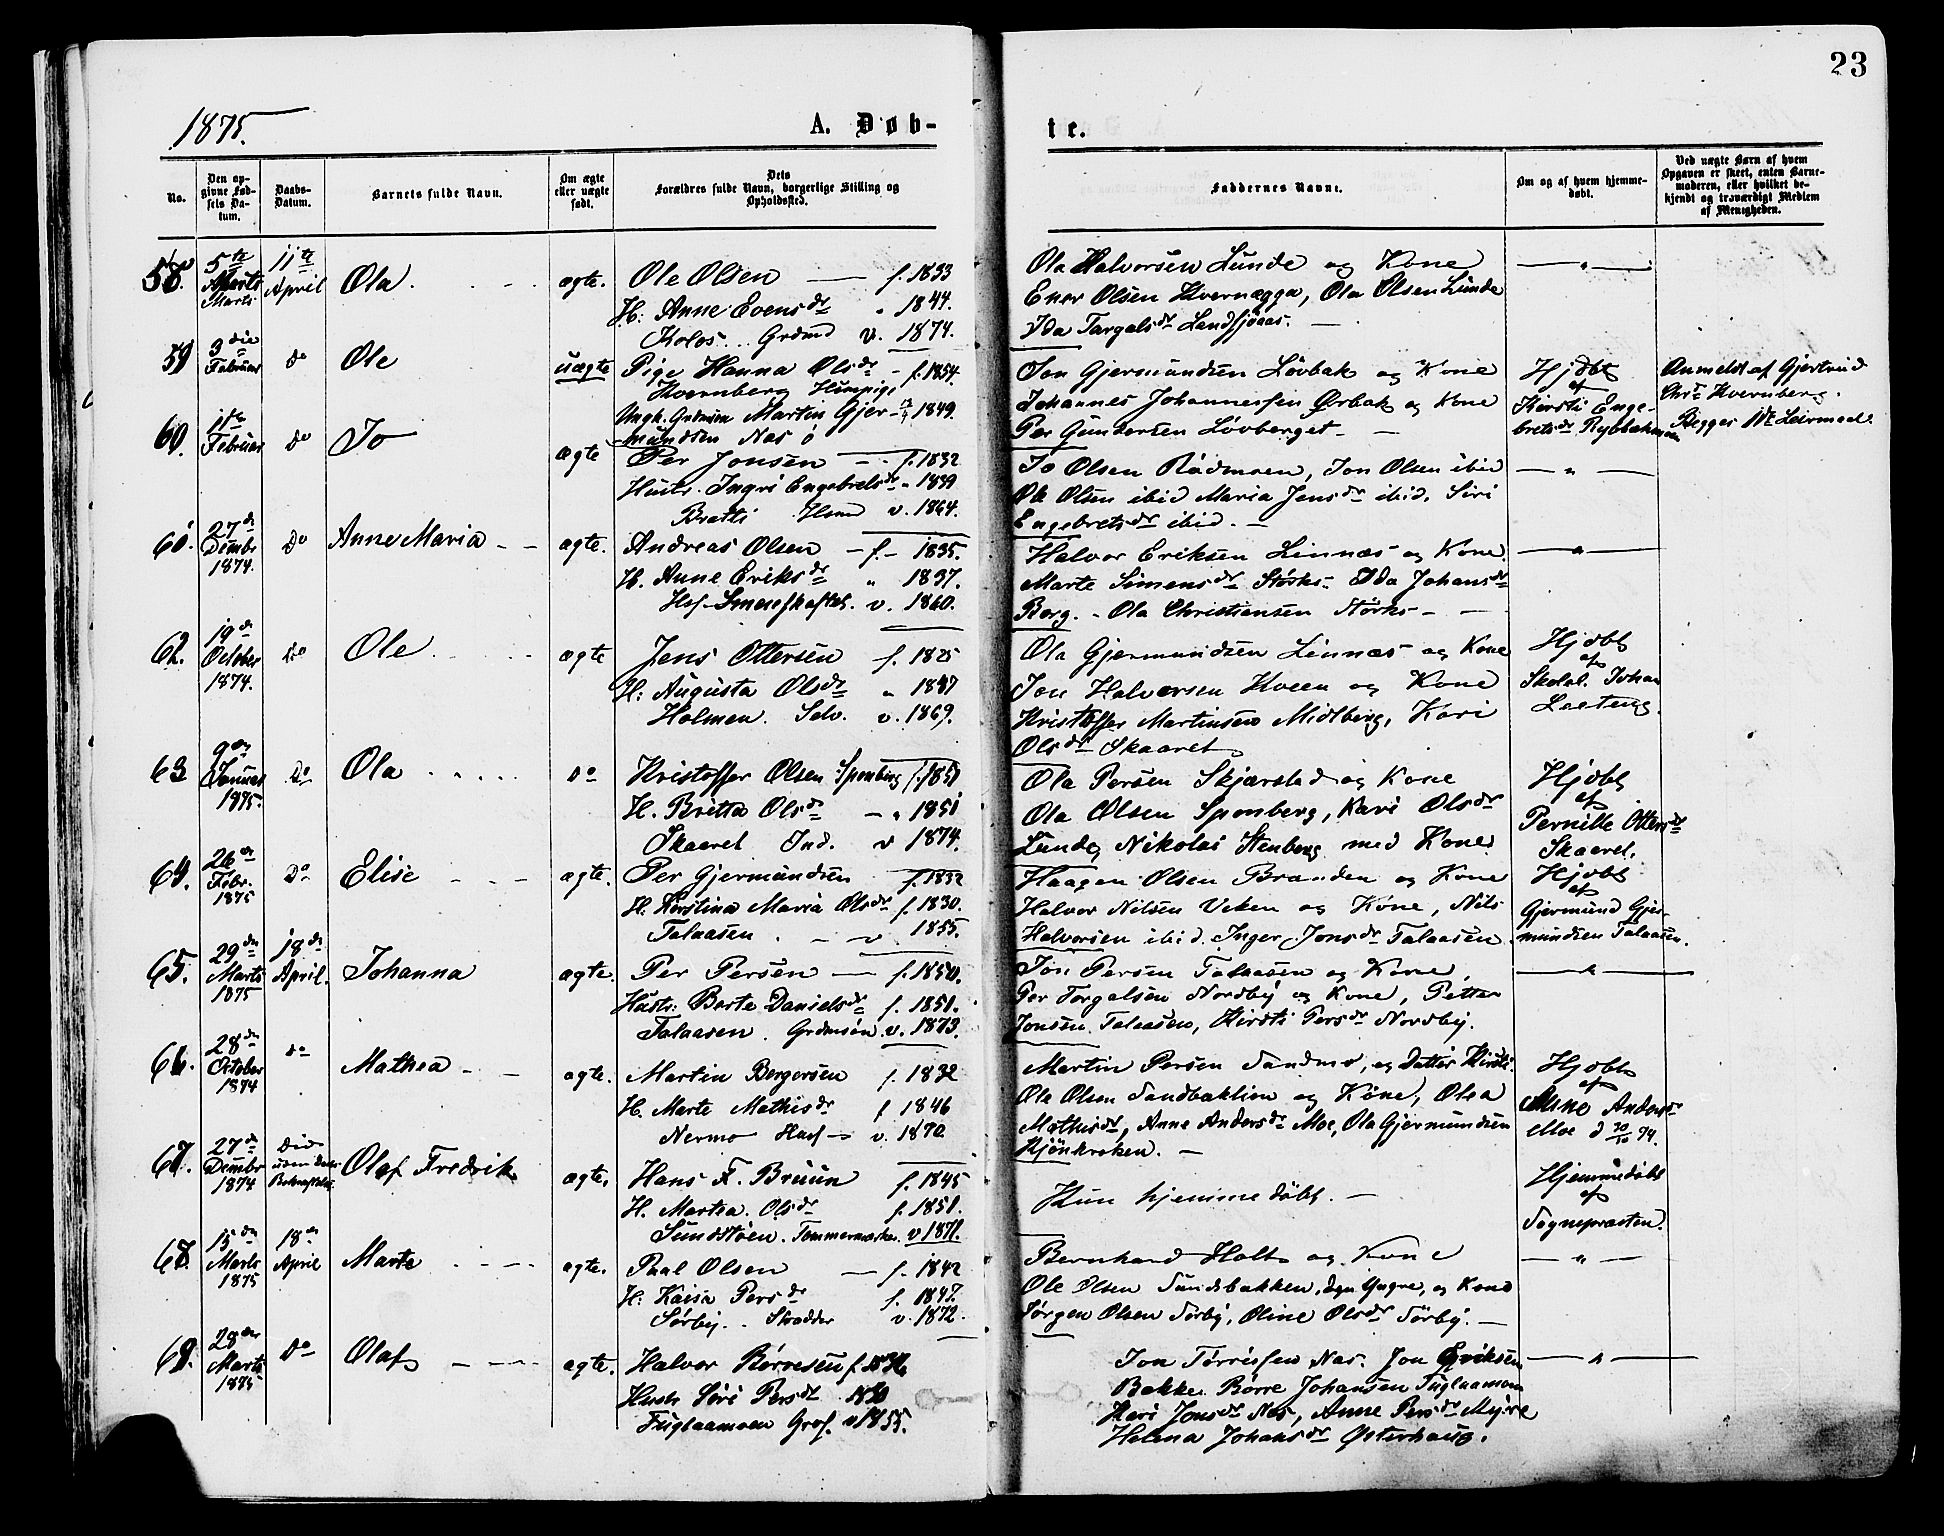 23
1875.
A. Døb-
te.
No.
Den op-
givne Fød-
sels Da-
tum.
Daabs-
Datum.
Barnets fulde Navn.
Om ægte
eller uægte
født.
Dets
Forældres fulde Navn, borgerlige Stilling og
Opholdssted.
Faddernes Navne.
Om og af hvem hjemme-
døbt.
Ved uægte Børn af hvem
Opgaven er skeet, enten Barne-
moderen, eller hvilket be-
kjendt og troværdigt Medlem
af Menigheden.
58.
5te
Marts
11te
April
Ola
ægte.
Ole Olsen f. 1833
H: Anne Evensdr " 1844.
Kolos Grdmd v. 1874.
Ola Halvorsen Lunde og Kone
Ener Olsen Kvernægga, Ola Olsen Lunde
Ida Targalsdr
— " —
59
3die
Februar
do
Ole
uægte
Pige Hanna Olsdr f. 1854.
Kvernberg
Ungk. Martin Gjer- 1849.
mundsen Nas ø
Jon Gjermundsen Løvbak og Kone
Johannes Johannessen Ørbak og Kone
Per Gundersen Løvberget
Hjdbt
af
Kirsti Enge-
bretsdr
Anmeldt af Gjertrud
Chrdr Kvernberg.
60.
11te
Februar
do
Jo
ægte
Per Jonsen f. 1832
Hustr. Ingri Engebretsdr " 1839
Bratli v. 1864.
Jo Olsen Rådmoen, Jon Olsen ibid
Ole Olsen ibid Maria Jensdr ibid. Siri
Engebretsdr ibid.
— " —
61.
27de
Dembr
1874.
do
Anne Maria
ægte.
Andreas Olsen f. 1835.
H. Anne Eriksdr " 1837.
v. 1860.
Halvor Eriksen Linnæs og Kone
Marte Simensdr Störks. Ida Johansdr
Borg. Ola Christiansen Störks
— " —
62.
19de
October
1874.
do
Ole
ægte
Jens Ottersen f. 1825
H: Augusta Olsdr " 1837
Holmen. Selv. v. 1869.
Ola Gjermundsen Linnæs og Kone
Jon Halvorsen Hveen og Kone
Kristoffer Martinsen Midlberg, Kari
Olsdr Skaaret
Hjdbt
af
Skolel. Johan
63
9de
Januar
1875.
do
Ola
do
Kristoffer Olsen Sponberg f. 1851
H. Britta Olsdr " 1851
Skaaret Ind. v 1874.
Ola Persen Skjærstad og Kone
Ola Olsen Sponberg, Kari Olsdr
Lunde, Nikolai Stenberg med Kone
Hjdbt
af
Pernille Ottersdr
Skaaret.
64.
26de
Febr.
1875
do
Elise
ægte.
Per Gjermundsen f. 1832
H. Kerstina Maria Olsdr f. 1830.
Talaasen v 1855.
Haagen Olsen Branden og Kone
Halvor Nilsen Veken og Kone, Nils
Halvorsen ibid. Inger Jonsdr Talaasen.
Hjdbt
af
Gjermund Gjer-
mundsen Talaasen.
65.
29de
Marts
1875
18de
April.
Johanna
ægte.
Per Persen f. 1850.
Hustr: Berte Danielsdr f. 1851.
Talaasen. Grdmsön v. 1873.
Jon Persen Talaasen og Kone,
Per Torgalsen Nordby og Kone, Petter
Jonsen Talaasen, Kirsti Persdr Nordby.
— " —
66.
28de
October
1874
do
Mathea
ægte.
Martin Bergersen f. 1832
H. Marte Mathisdr f 1846
Nermo v. 1870
Martin Persen Sandmo, og Datter Kirsti.
Ole Olsen Sandbaklien og Kone, Olea
Mathisdr, Anne Andersdr Moe, Ola Gjermundsen
Kjönkroken.
Hjdbt
af
Anne Andersdr
Moe d 30/10 74.
67.
27de
Dembr
1874
Olaf Fredrik
ægte.
Hans F. Bruun f. 1845
H. Martea Olsdr f. 1851.
Sundstöen. v 1871.
Kun hjemmedöbt.
Hjemmedöbt
af
Sognepræsten.
68.
15de
Marts
1875
18de
April
Marte
ægte.
Paal Olsen f. 1842
H: Kaisa Persdr f. 1847.
Sörby. Skrædder v. 1872.
Bernhard Holt og Kone
Ole Olsen Sundsbakken, den Yngre, og Kone
Jörgen Olsen Sörby, Oline Olsdr Sörby.
— " —
69.
28de
Marts
1875
do
Olaf
ægte.
Halvor Börresen f.
Hustr Siri Persdr 1830
Fuglaamoen v 1855.
Jon Törrissen Nas. Jon Eriksen
Bakken Börre Johansen Fuglaamoen
Kari Jonsdr Nas, Anne Persdr Myre
Helena Johansdr Østerhaug.
— " —